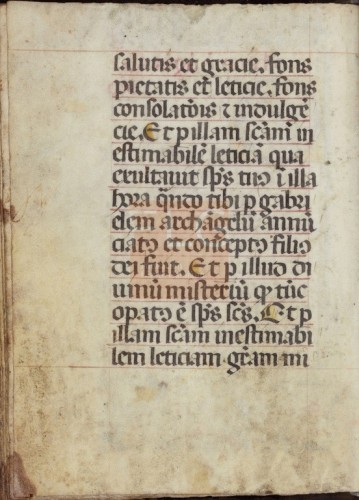 salutis et gracie. fons
pietatis et leticie. fons
consolatōis ⁊ indulgē
cie. Et p illam scām in
estimabilē leticiā qua
exultauit sp̄s tuo ī illa
hora qn̄do tibi p gabri
elem archāgelū annū
ciato et concepto filio
dei fuit. Et p illud di
uinū misteriū qͥ tūc
opato ē sp̄s scs̄. Et p
illam scām inestimabi
lem leticiam gr̄am mi